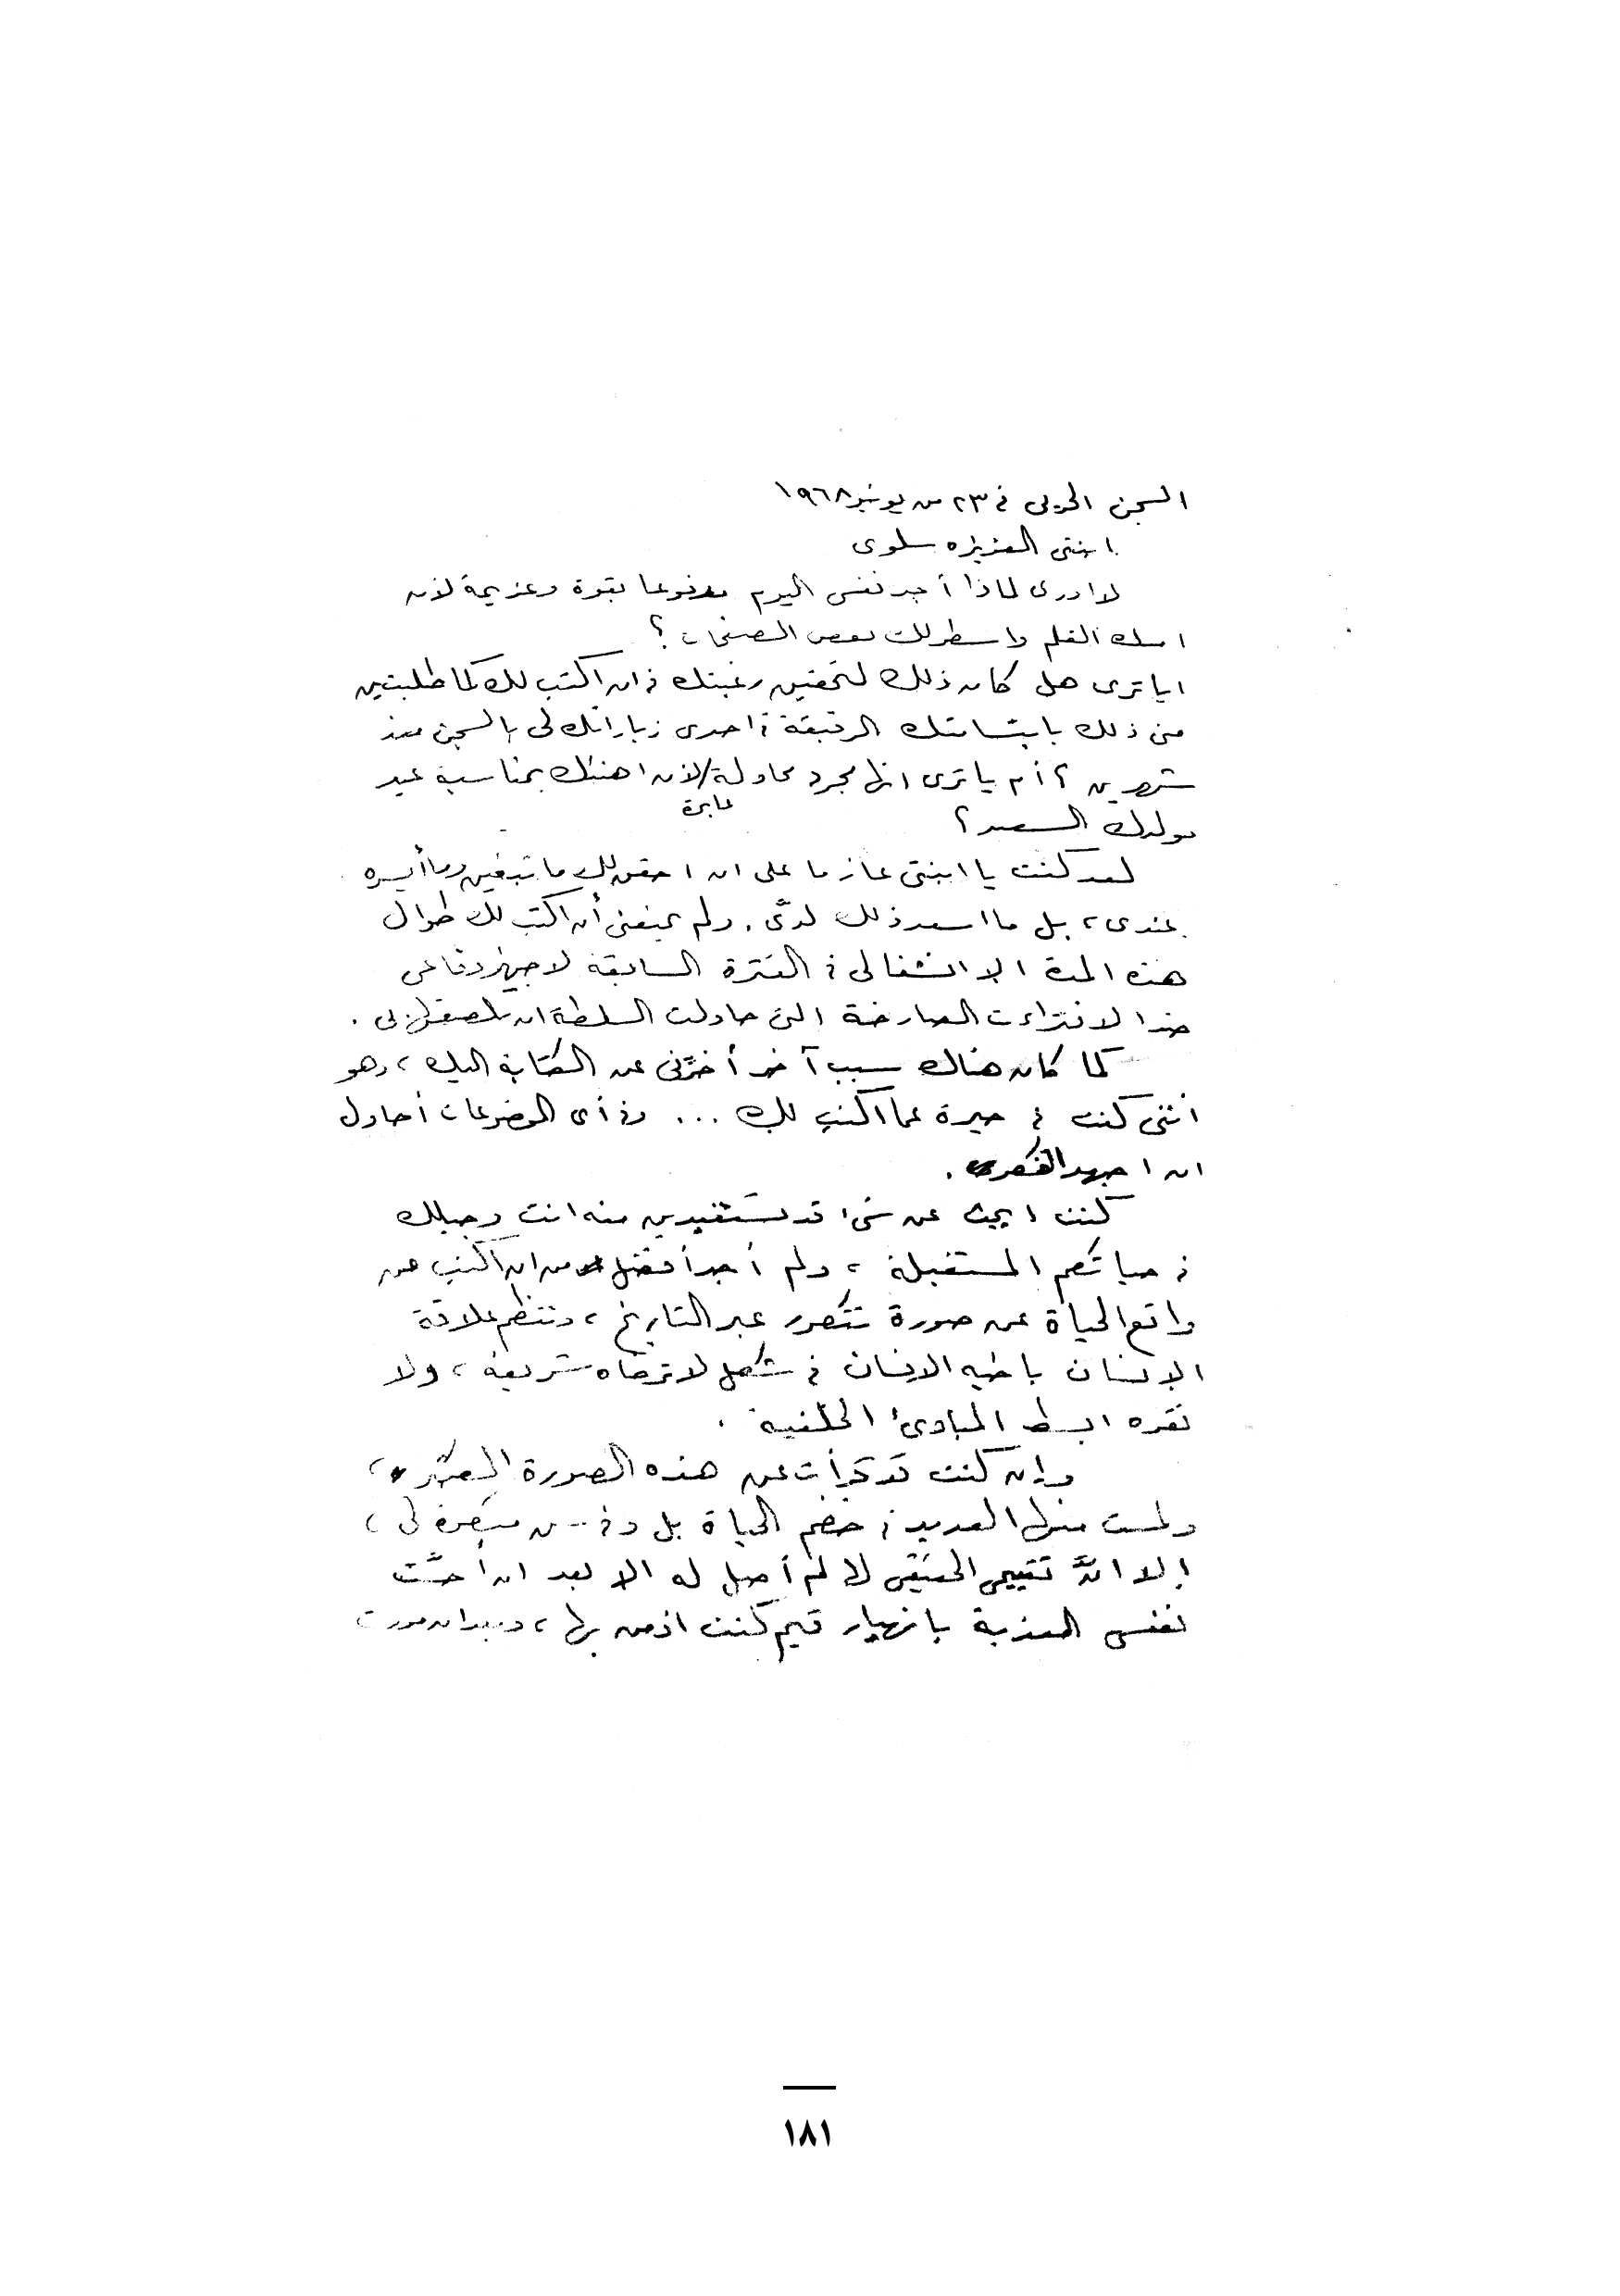 السجن الحربى فى ٢٣ من يونيو ١٩٦٨
ابنتى العزيزه سلوى
لا ادرى لماذا أجد نفسى اليوم مدفوعا بقوة وعزيمة لان
امسك القلم واسطر لك بعض الصفحات ؟
اياترى هل كان ذلك لتحقيق رغبتك فى ان اكتب لك كما طلبتين
منى ذلك بابتسامتك الرقيقة فى احدى زياراتك لى بالسجن منذ
شهرين ؟ أم ياترى انها مجرد محاولة / لان اهنئك بمناسبة عيد
عابرة
مولدك السعيد ؟
لقد كنت يا ابنتى عازما على ان احقق لك ما تبغين وما أيسره
عندى ، بل ما اسعد ذلك لدىّ . ولم يمنعنى أن اكتب لك طوال
هذه المدة الا انشغالى فى الفترة السابقة لاجهز دفاعى
ضد الافتراءت الصارخة التى حاولت السلطة ان تلصقها بى .
كما كان هناك سبب آخر أخرّنى عن الكتابة اليك ، وهو
أننى كنت فى حيرة عما اكتب لك ... وفى أى الموضوعات أحاول
ان اجهد الفكر .
كنت ابحث عن شىء قد تستفيدين منه انت وجيلك
فى حياتكم المستقبلة ، ولم أجد أفضل من ان اكتب عن
واقع الحياة عن صورة تتكرر عبر التاريخ ، وتنظم علاقة
الإنسان باخيه الانسان فى شكل لا ترضاه شريعة ، ولا
تقره ابسط المبادئ الخلقية .
وإن كنت قد قرأت عن هذه الصورة الكثير ،
ولمست منها العديد فى خضم الحياة بل وفى ... مبكرة لى ،
إلا انَّ تقييمى الحقيقى لها لم أصل له الا بعد ان أحسَّت
نفسى المعذبة بانهيار قيم كنت اؤمن بها ، وبعد ان مررت
١٨١